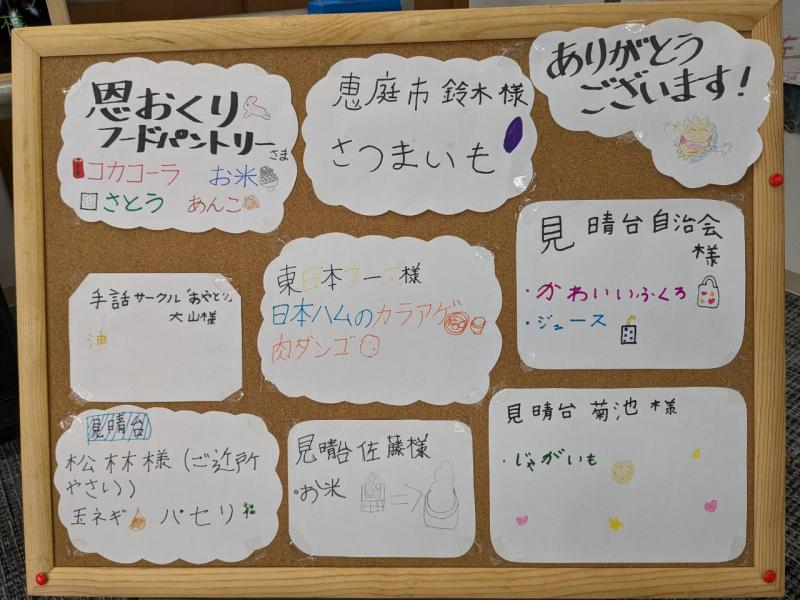 恩おくり
フードパントリーさま
コカコーラ お米
さとう あんこ
恵庭市 鈴木様
さつまいも
ありがとう
ございます!
手話サークル「おやとり」
大山様
油
東日本フーズ様
日本ハムのカラアゲ
肉ダンゴ
見晴台自治会
様
・かわいいふくろ
・ジュース
見晴台
松林様(ご近所
やさい))
玉ネギ パセリ
見晴台佐藤様
・お米
見晴台 菊池様
・じゃがいも